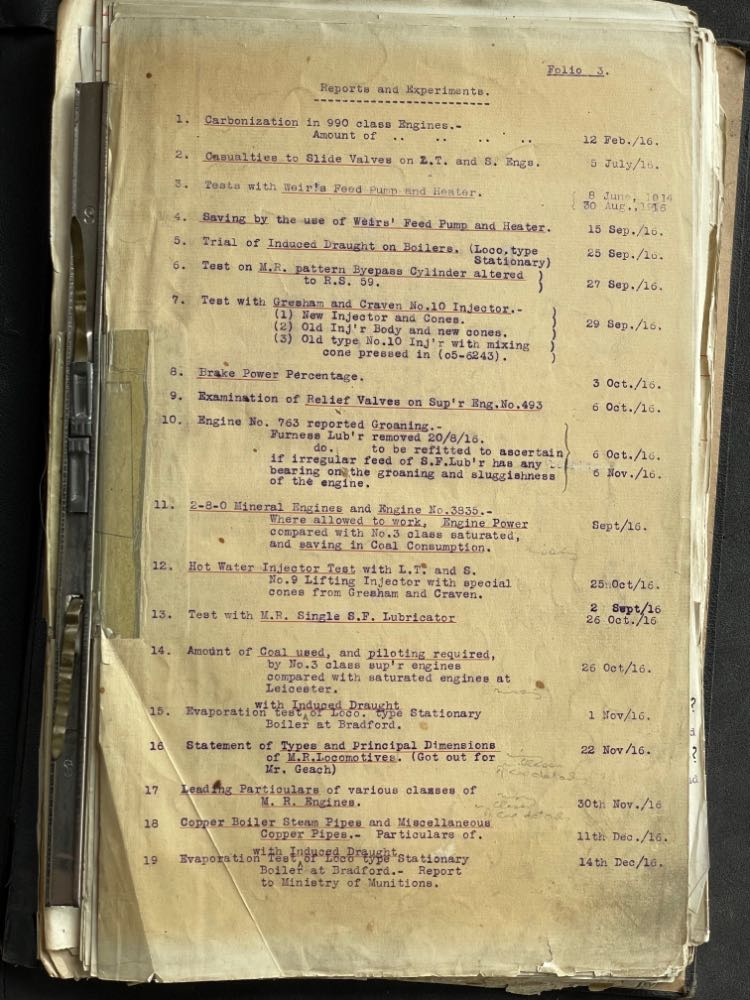 Folio 3.
Reports and Experiments.
1. Carbonization in 990 class Engines.-
Amount of .. .. .. .. 12 Feb./16.
2. Casualties to Slide Valves on L.T. and S. Engs. 5 July/16.
3. Tests with Weir's Feed Pump and Heater. 8 June, 1914
30 Aug., 1916
4. Saving by the use of Weirs' Feed Pump and Heater. 15 Sep./16.
5. Trial of Induced Draught on Boilers. (Loco.type 25 Sep./16.
Stationary)
6. Test on M.R. pattern Byepass Cylinder altered
to R.S. 59. 27 Sep./16.
7. Test with Gresham and Craven No.10 Injector.-
(1) New Injector and Cones.
(2) Old Inj'r Body and new cones. 29 Sep./16.
(3) Old type No.10 Inj'r with mixing
cone pressed in (o5-6243).
8. Brake Power Percentage. 3 Oct./16.
9. Examination of Relief Valves on Sup'r Eng.No.493 6 Oct./16.
10. Engine No. 763 reported Groaning.-
Furness Lub'r removed 20/8/16.
do. to be refitted to ascertain 6 Oct./16.
if irregular feed of S.F.Lub'r has any
bearing on the groaning and sluggishness 6 Nov./16.
of the engine.
11. 2-8-0 Mineral Engines and Engine No.3835.-
Where allowed to work, Engine Power Sept/16.
compared with No.3 class saturated,
and saving in Coal Consumption.
12. Hot Water Injector Test with L.T. and S.
No.9 Lifting Injector with special 25 Oct/16.
cones from Gresham and Craven.
2 Swpt/16
13. Test with M.R. Single S.F. Lubricator 26 Oct./16
14. Amount of Coal used, and piloting required,
by No.3 class sup'r engines 26 Oct/16.
compared with saturated engines at
Leicester.
with Induced Draught
15. Evaporation test of Loco. type Stationary 1 Nov/16.
Boiler at Bradford.
16 Statement of Types and Principal Dimensions 22 Nov/16.
of M.R.Locomotives. (Got out for
Mr. Geach)
17 Leading Particulars of various classes of
M. R. Engines. 30th Nov./16
18 Copper Boiler Steam Pipes and Miscellaneous
Copper Pipes.- Particulars of. 11th Dec./16.
with Induced Draught
19 Evaporation Test of Loco type Stationary 14th Dec/16.
Boiler at Bradford.- Report
to Ministry of Munitions.